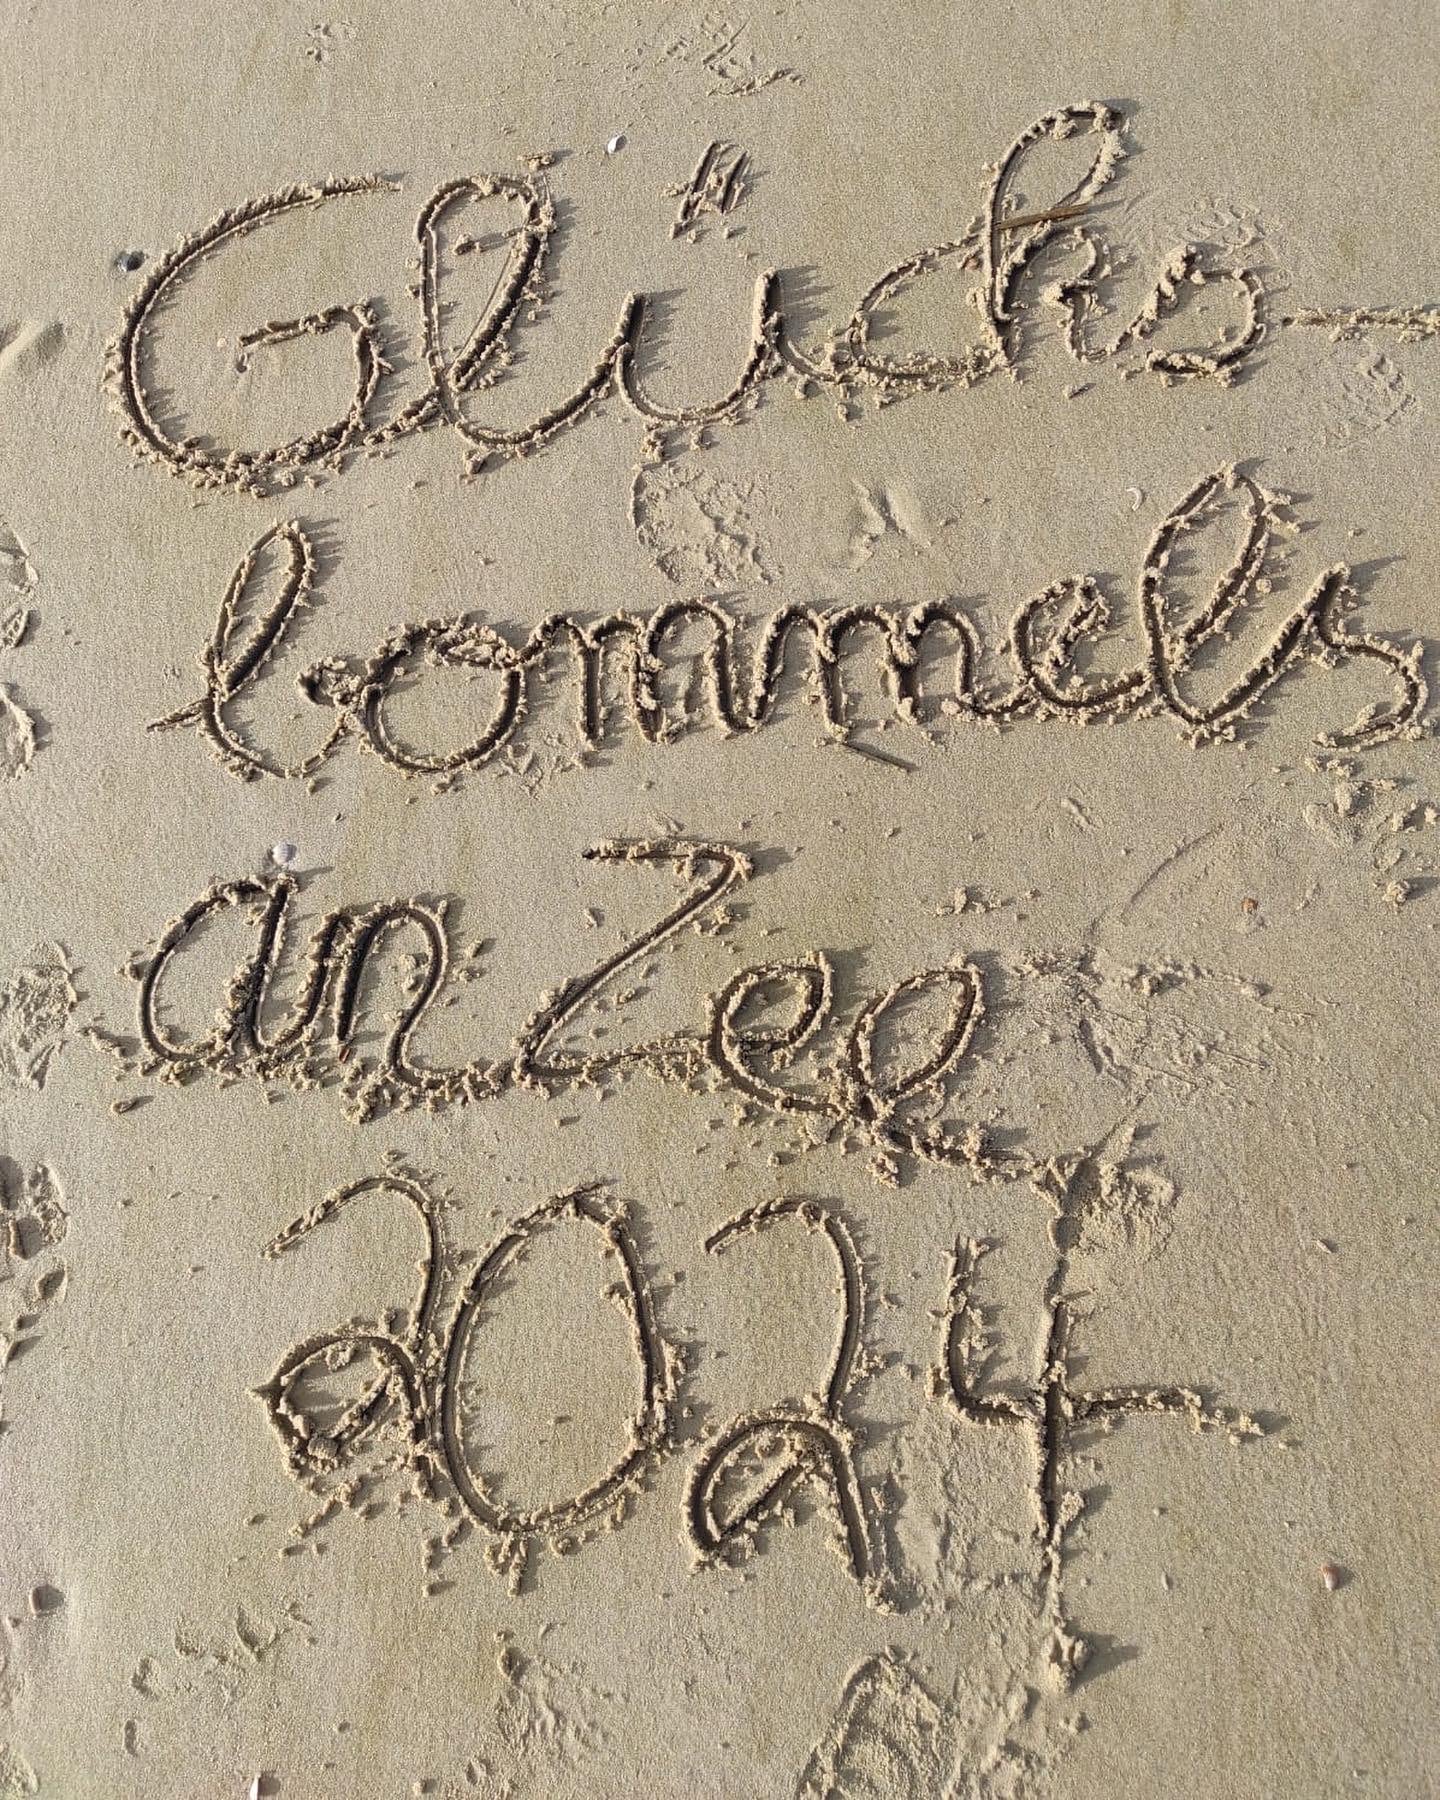 Glücks-
bommels
an Zee
2024